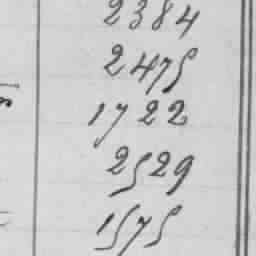 2384
2475
1722
2529
1575